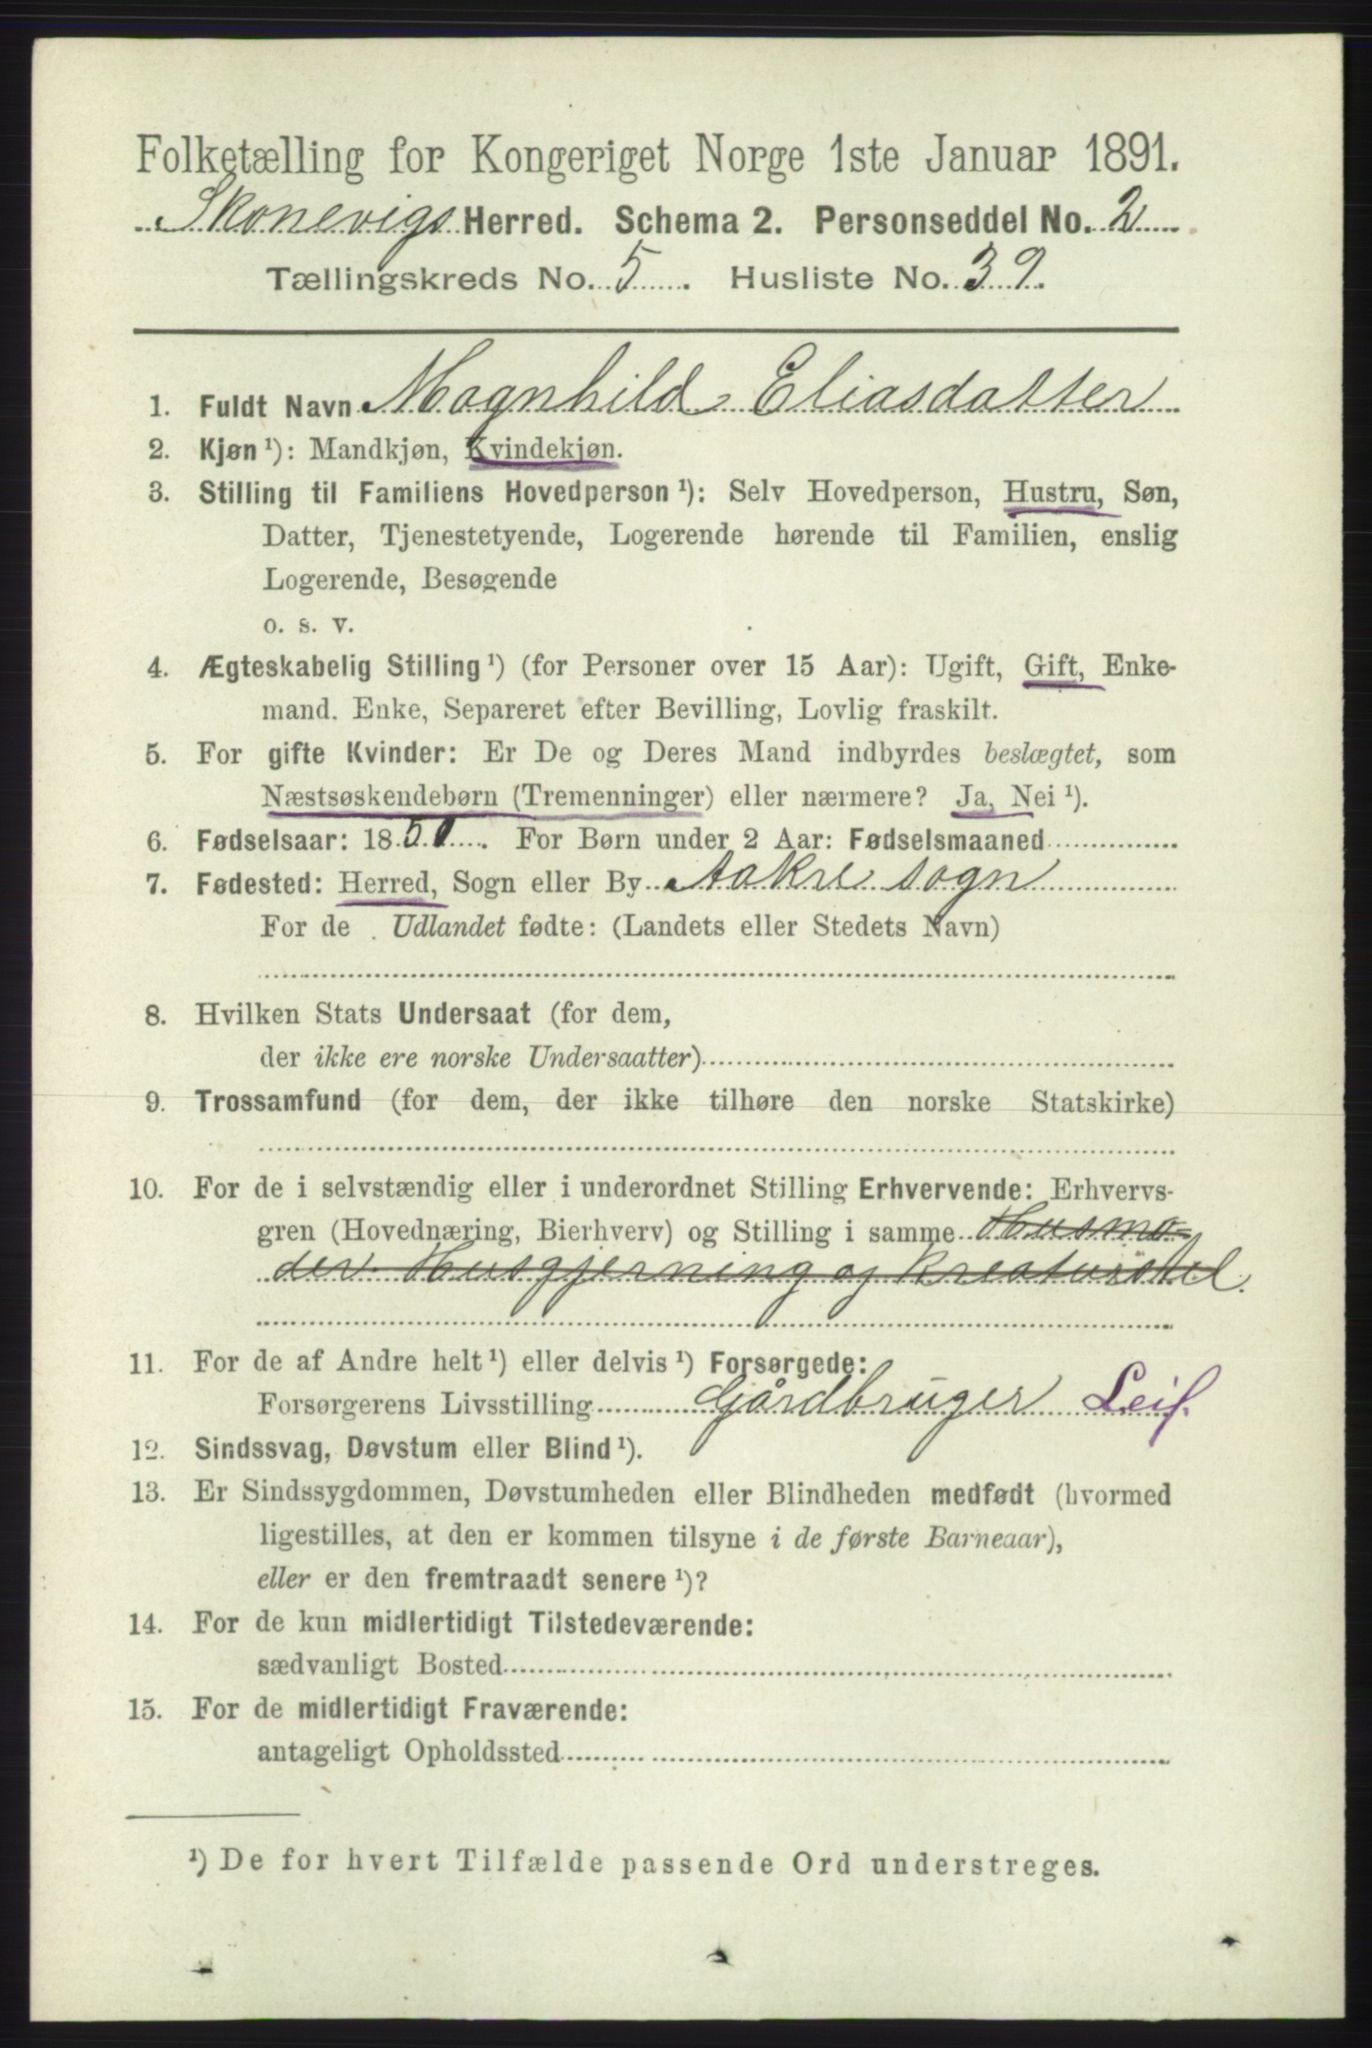 Folketælling for Kongeriget Norge 1ste Januar 1891.
Skonevigs Herred. Schema 2. Personseddel No. 2
Tællingskreds No. 5. Husliste No. 39.
1. Fuldt Navn Magnhild Eliasdatter
2. Kjøn ¹): Mandkjøn, Kvindekjøn.
3. Stilling til Familiens Hovedperson ¹): Selv Hovedperson, Hustru, Søn,
Datter, Tjenestetyende, Logerende hørende til Familien, enslig
Logerende, Besøgende
o. s. v.
4. Ægteskabelig Stilling ¹) (for Personer over 15 Aar): Ugift, Gift, Enke-
mand. Enke, Separeret efter Bevilling, Lovlig fraskilt.
5. For gifte Kvinder: Er De og Deres Mand indbyrdes beslægtet, som
Næstsøskendebørn (Tremenninger) eller nærmere? Ja, Nei ¹).
6. Fødselsaar: 1850. For Børn under 2 Aar: Fødselsmaaned
7. Fødested: Herred, Sogn eller By Aakre sogn
For de Udlandet fødte: (Landets eller Stedets Navn)
8. Hvilken Stats Undersaat (for dem,
der ikke ere norske Undersaatter)
9. Trossamfund (for dem, der ikke tilhøre den norske Statskirke)
10. For de i selvstændig eller i underordnet Stilling Erhvervende: Erhvervs-
gren (Hovednæring, Bierhverv) og Stilling i samme Husmo=
der Husgjerning og Kreaturstel
11. For de af Andre helt ¹) eller delvis ¹) Forsørgede:
Forsørgerens Livsstilling Gårdbruger Leif.
12. Sindssvag, Døvstum eller Blind ¹).
13. Er Sindssygdommen, Døvstumheden eller Blindheden medfødt (hvormed
ligestilles, at den er kommen tilsyne i de første Barneaar),
eller er den fremtraadt senere ¹)?
14. For de kun midlertidigt Tilstedeværende:
sædvanligt Bosted
15. For de midlertidigt Fraværende:
antageligt Opholdssted
¹) De for hvert Tilfælde passende Ord understreges.